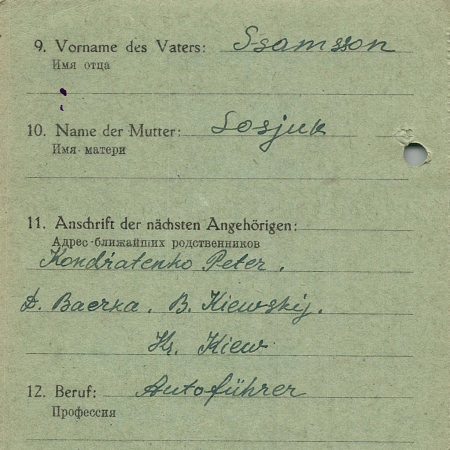 9. Vorname des Vaters: Ssamsson
Имя отца
10. Name der Mutter: Sosjuk
Имя матери
11. Anschrift der nächsten Angehörigen:
Адрес ближайших родственников
Kondratenko Peter.
D. Baerka. B. Kiewskij.
Kr. Kiew
12. Beruf: Autoführer
Профессия